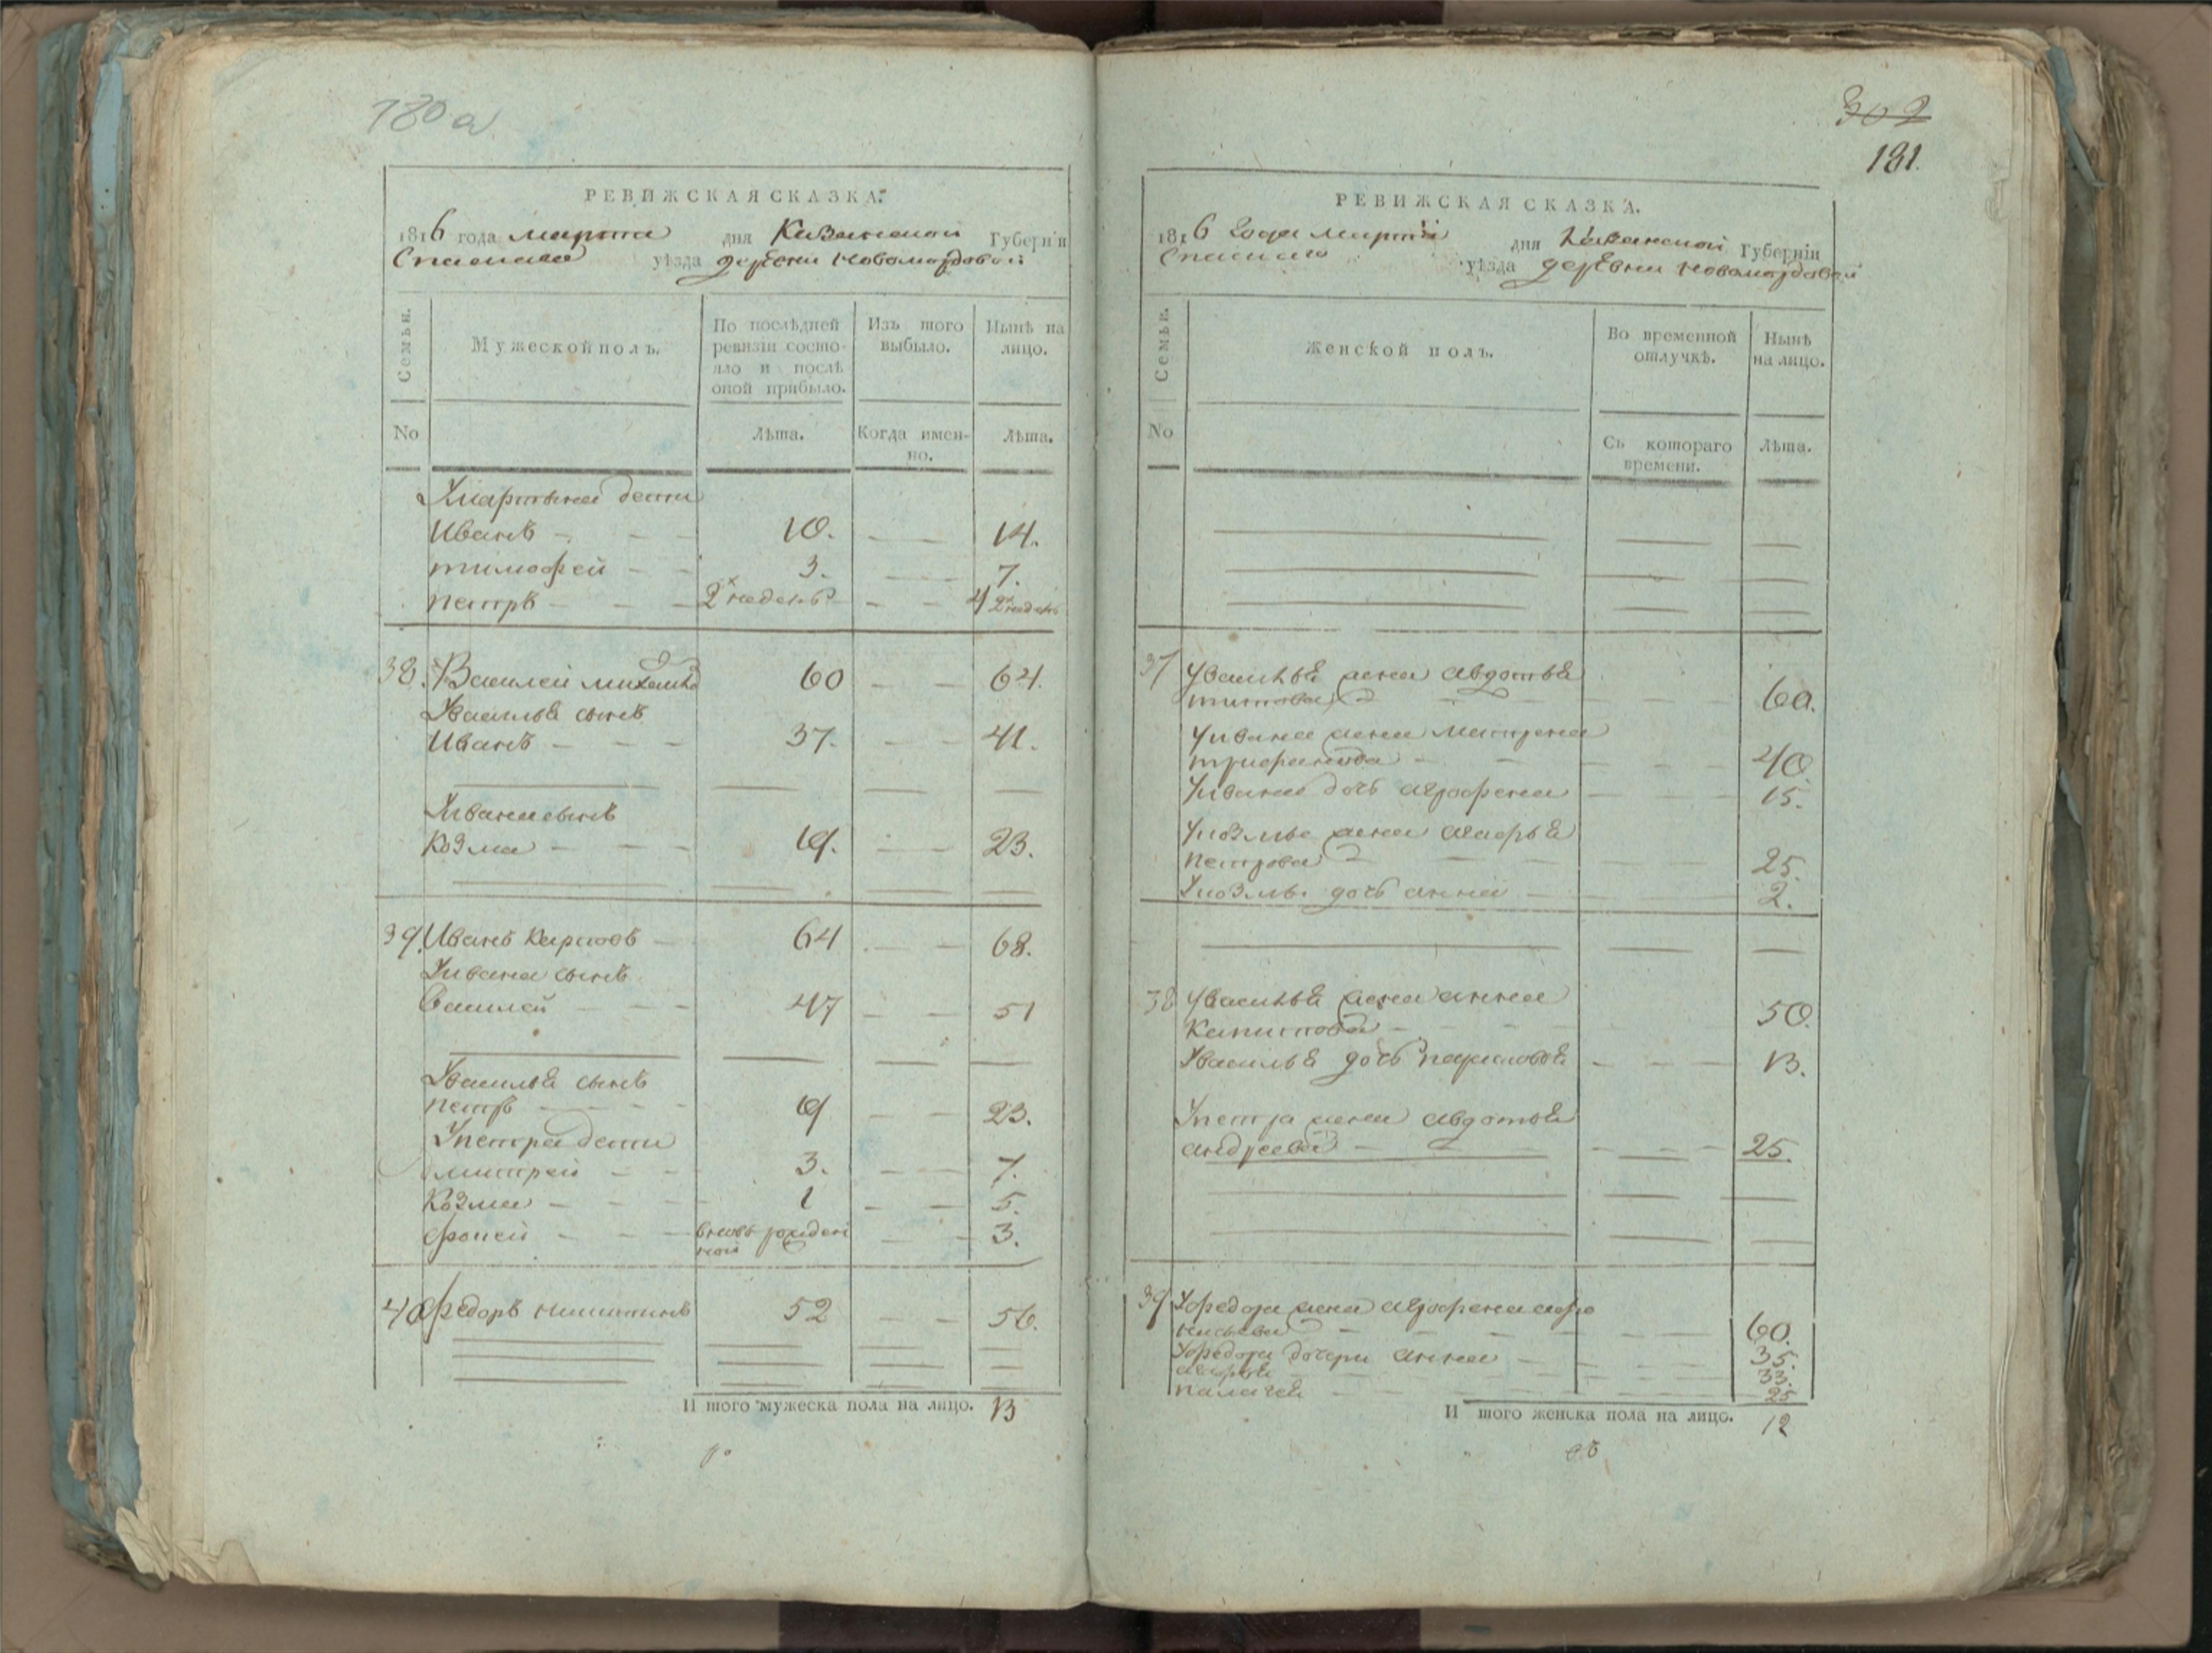 180 а
РЕВИЖСКАЯ СКАЗКА.
1816 года марта дня Казанской Губерніи
Спаскаго уѣзда деревни Новомордовой
Семьи.
Мужеской полъ.
По послѣдней ревизіи состояло и послѣ оной прибыло.
Изъ того выбыло.
Нынѣ на лицо.
No
Лѣта.
Когда именно.
Лѣта.
У мартына дети
Иванъ 10. 14.
тимофей 3. 7.
петръ 2х недель 4 2х недель
38. Василей михаилов 60 64.
У василья сынъ
Иванъ 37. 41.
У ивана сынъ
Козма 19. 23.
39. Иванъ Карповъ 64 68.
У ивана сынъ
Василей 47 51
У василья сынъ
петръ 19 23.
У петра дети
митрей 3. 7.
Козма 1 5.
фокей вновь рожден
ной 3.
40 федоръ никитинъ 52 56.
И того мужеска пола на лицо. 13
302
181.
РЕВИЖСКАЯ СКАЗКА.
1816 года марта дня Казанской Губерніи
Спаскаго уѣзда деревни Новомордовой
Семьи.
Женской полъ.
Во временной отлучкѣ.
Нынѣ на лицо.
No
Съ котораго времени.
Лѣта.
37 У василья жена авдотья
титова 60.
У ивана жена матрена
трифанова 40.
У ивана дочь агрофена 15.
У козмы жена марья
петрова 25.
У козмы дочь анна 2.
38 У василья жена анна
Капитова 50.
У василья дочь парасковья 13.
У петра жена авдотья
андреева 25.
39 У федора жена агрофена афо
насьева 60.
У федора дочери анна 35.
марья 33.
палагея 25
И того женска пола на лицо. 12